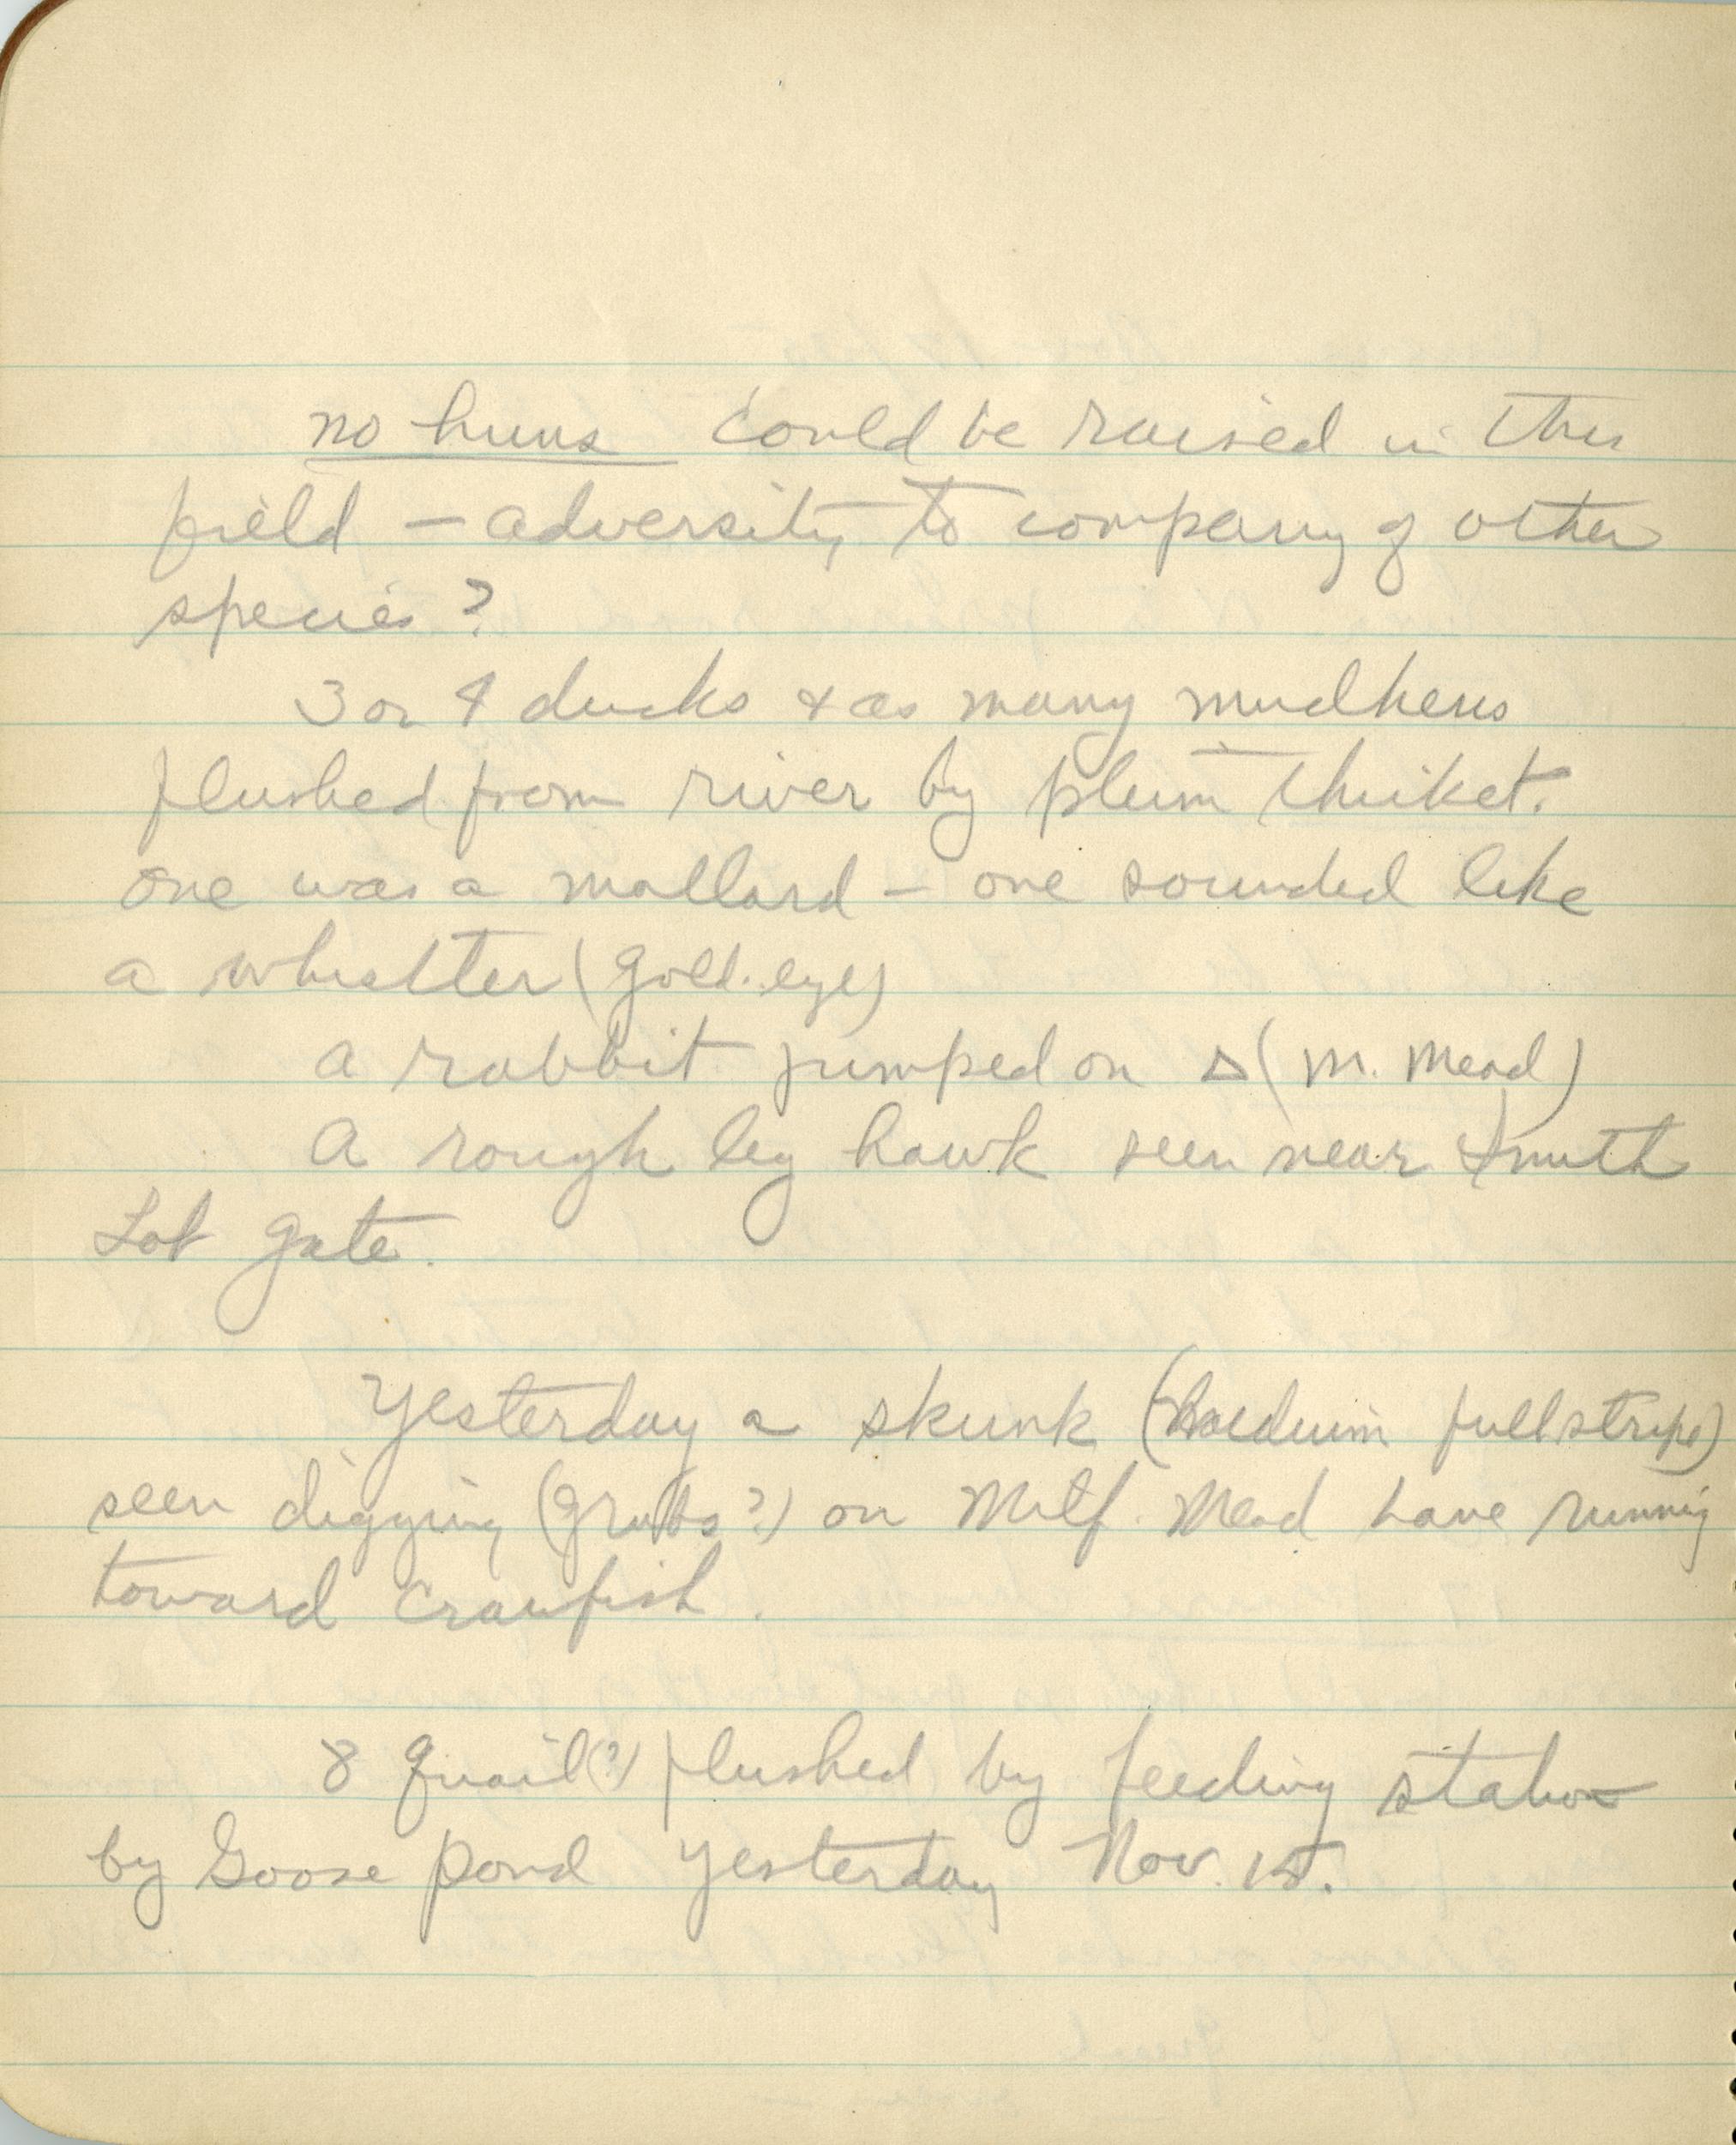 no huns could be raised in this
field — adversity to company of other
species?
3 or 4 ducks & as many mudhens
flushed from river by plum thicket.
One was a mallard — one sounded like
a whistler (gold.eye)
a rabbit jumped on Δ (M. Mead)
A rough leg hawk seen near Smith
Lot gate.
Yesterday a skunk (medium full stripe)
seen digging (grubs?) on Milf. Mead running
toward Crawfish.
8 Quail(?) flushed by feeding station
by Goose Pond yesterday Nov. 15.